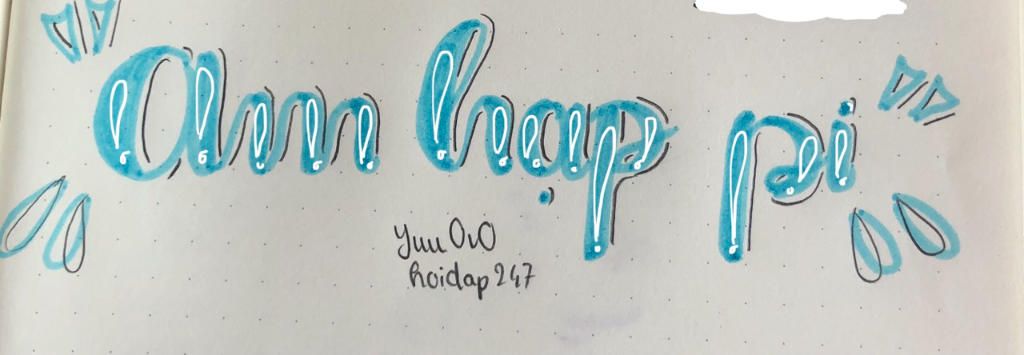 Am hạp pi
Yuu OvO
hoidap247